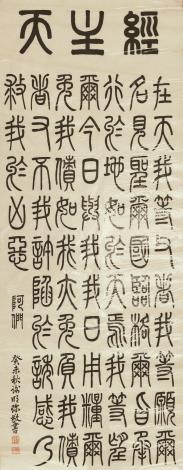 天主經
在天我等父者我等願爾
名見聖爾國臨格爾旨承
行於地如於天焉我等望
爾今日與我我日用糧爾
免我債如我亦免負我債
者又不我許陷於誘感乃
救我於凶惡 阿們
癸未秋敬書